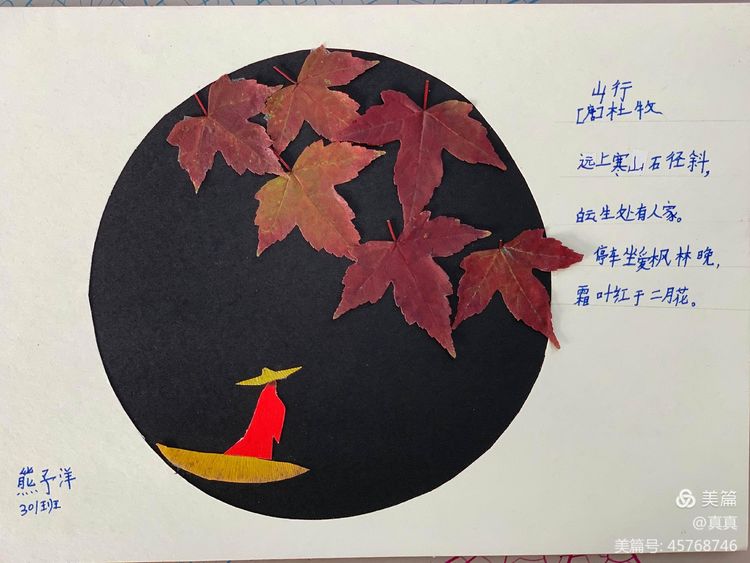 山行
[唐]杜牧
远上寒山石径斜，
白云生处有人家。
停车坐爱枫林晚，
霜叶红于二月花。
熊予洋
301班
美篇
@真真
美篇号: 45768746